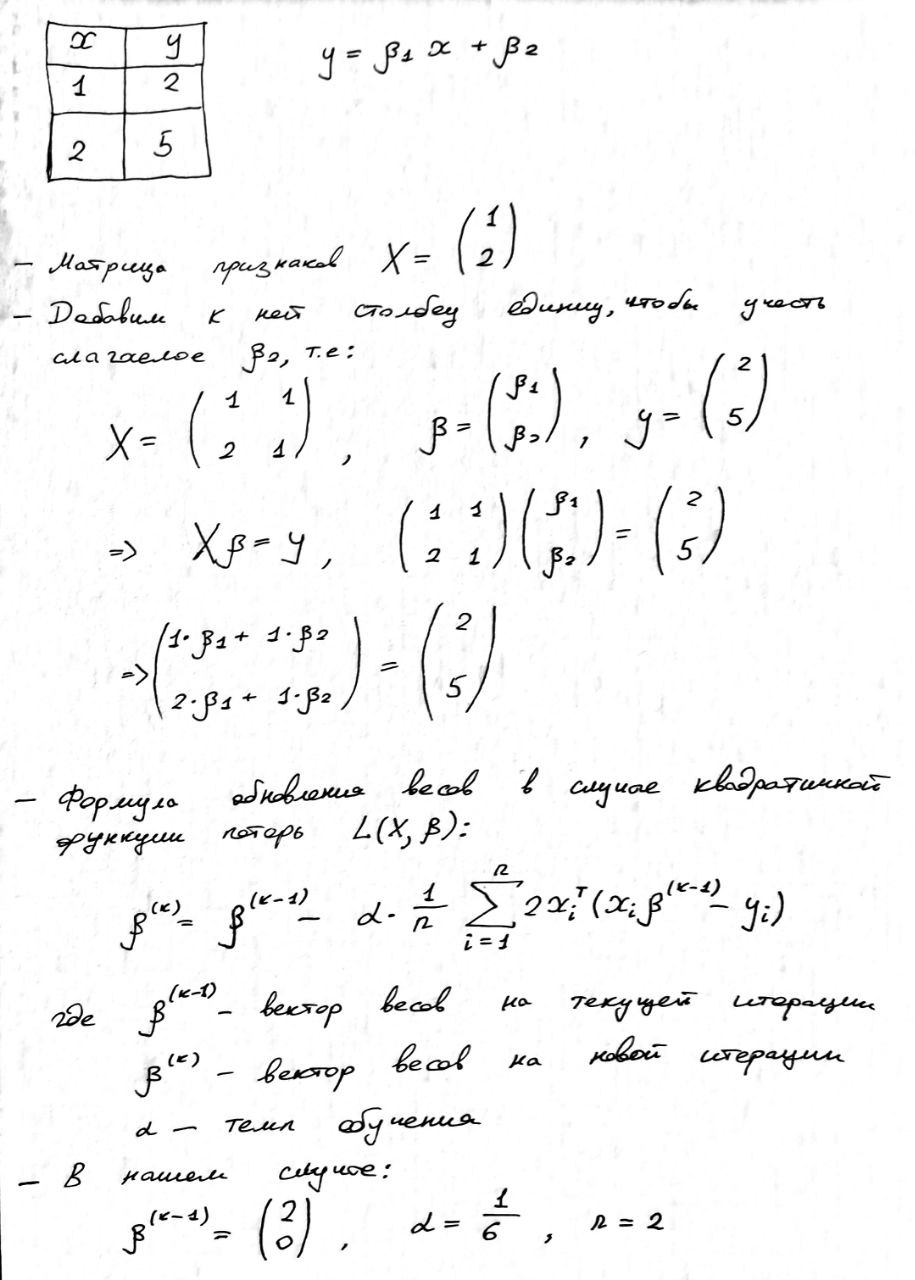 x y
1 2
2 5
y = β1 x + β2
– Матрица признаков X = (1 2)
– Добавим к ней столбец единиц, чтобы учесть
слагаемое β2, т.е:
X = (1 1 2 1), β = (β1 β2), y = (2 5)
=> Xβ = y, (1 1 2 1)(β1 β2) = (2 5)
=> (1·β1 + 1·β2 2·β1 + 1·β2) = (2 5)
– Формула обновления весов в случае квадратичной
функции потерь L(X, β):
β^(k) = β^(k-1) – α · 1/n ∑_{i=1}^{n} 2x_i^T (x_i β^(k-1) – y_i)
где β^(k-1) – вектор весов на текущей итерации
β^(k) – вектор весов на новой итерации
α – темп обучения
– В нашем случае:
β^(k-1) = (2 0), α = 1/6, n = 2